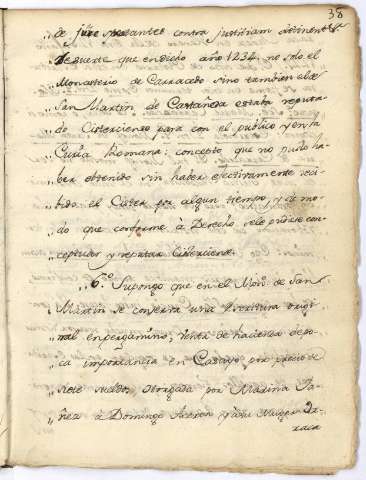 38
„ de jure spectantes contra justitiam detinent &a
„ De suerte que en dicho año 1234 no solo el
„ Monasterio de Carracedo sino tambien el de
„ San Martin de Castañeda estaba reputa-
„ do Cisterciense para con el publico y en la
„ Curia Romana; concepto que no pudo ha-
„ ber obtenido sin haber efectivamente reci-
„ bido el Cister por algun tiempo, y de mo-
„ do que conforme à Derecho se le pudiese con-
„ ceptuar y reputar Cisterciense.
„ 6.º Supongo que en el Mon.º de San
„ Martin se conserva una Escritura origi-
„ nal en pergamino, venta de hacienda de po-
„ ca importancia en Casayo por precio de
„ siete sueldos, otorgada por Marina
„ à Domingo y à su Muger